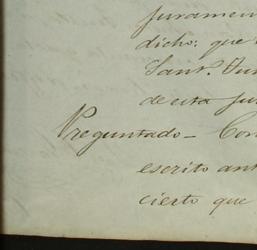 juramen
dicho: que
Sant.
de esta ju
Preguntado— Con
escrito ant
cierto que